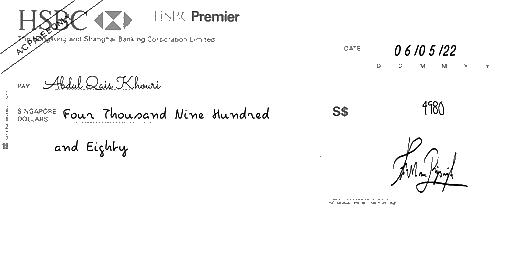 HSBC HSBC Premier
The Hongkong and Shanghai Banking Corporation Limited
DATE 06/05/22
D D M M Y Y
PAY Abdul Qais Khouri
SINGAPORE DOLLARS Four Thousand Nine Hundred
and Eighty
S$ 4980